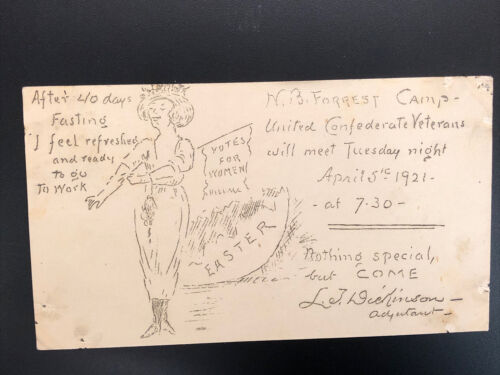 After 40 days
Fasting
I feel refreshed
and ready
to go
To Work
VOTES
FOR
WOMEN
EASTER
N. B. FORREST CAMP-
United Confederate Veterans
will meet Tuesday night
April 5th 1921-
- at 7-30-
Nothing special,
but COME
L. T. Dickinson-
adjutant-